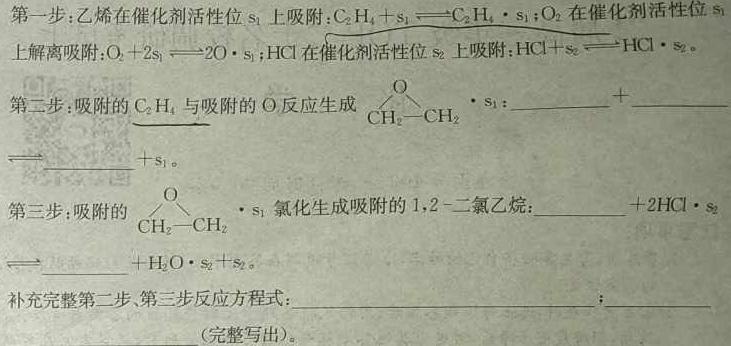 第一步:乙烯在催化剂活性位 s₁ 上吸附:C₂H₄+s₁⇌C₂H₄·s₁;O₂ 在催化剂活性位 s₁
上解离吸附:O₂+2s₁⇌2O·s₁;HCl 在催化剂活性位 s₂ 上吸附:HCl+s₂⇌HCl·s₂。
O
第二步:吸附的 C₂H₄ 与吸附的 O 反应生成 CH₂—CH₂ ·s₁:________+________
⇌________+s₁。
O
第三步:吸附的 CH₂—CH₂ ·s₁ 氯化生成吸附的 1,2-二氯乙烷:________+2HCl·s₂
⇌________+H₂O·s₂+s₂。
补充完整第二步、第三步反应方程式:________________;________
________(完整写出)。